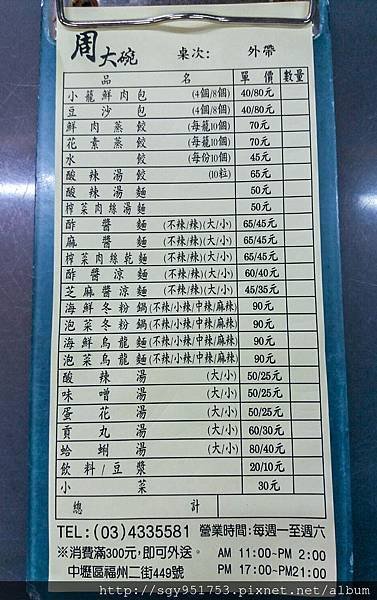 周大碗 桌次: 外帶
品名 單價 數量
小籠鮮肉包 (4個/8個) 40/80元
豆沙包 (4個/8個) 40/80元
鮮肉蒸餃 (每籠10個) 70元
花素蒸餃 (每籠10個) 70元
水餃 (每份10個) 45元
酸辣湯餃 (10粒) 65元
酸辣湯麵 50元
榨菜肉絲湯麵 50元
酢醬麵 (不辣/辣)(大/小) 65/45元
麻醬麵 (不辣/辣)(大/小) 65/45元
榨菜肉絲乾麵 (不辣/辣)(大/小) 65/45元
酢醬涼麵 (不辣/辣)(大/小) 60/40元
芝麻醬涼麵 (不辣/辣)(大/小) 45/35元
海鮮冬粉鍋 (不辣/小辣/中辣/麻辣) 90元
泡菜冬粉鍋 (不辣/小辣/中辣/麻辣) 90元
海鮮烏龍麵 (不辣/小辣/中辣/麻辣) 90元
泡菜烏龍麵 (不辣/小辣/中辣/麻辣) 90元
酸辣湯 (大/小) 50/25元
味噌湯 (大/小) 50/25元
蛋花湯 (大/小) 50/25元
貢丸湯 (大/小) 60/30元
蛤蜊湯 (大/小) 80/40元
飲料/豆漿 20/10元
小菜 30元
總計
TEL:(03)4335581 營業時間:每週一至週六
※消費滿300元,即可外送。 AM 11:00~PM 2:00
中壢區福州二街449號 PM 17:00~PM21:00
http://sgy951753.pixnet.net/album